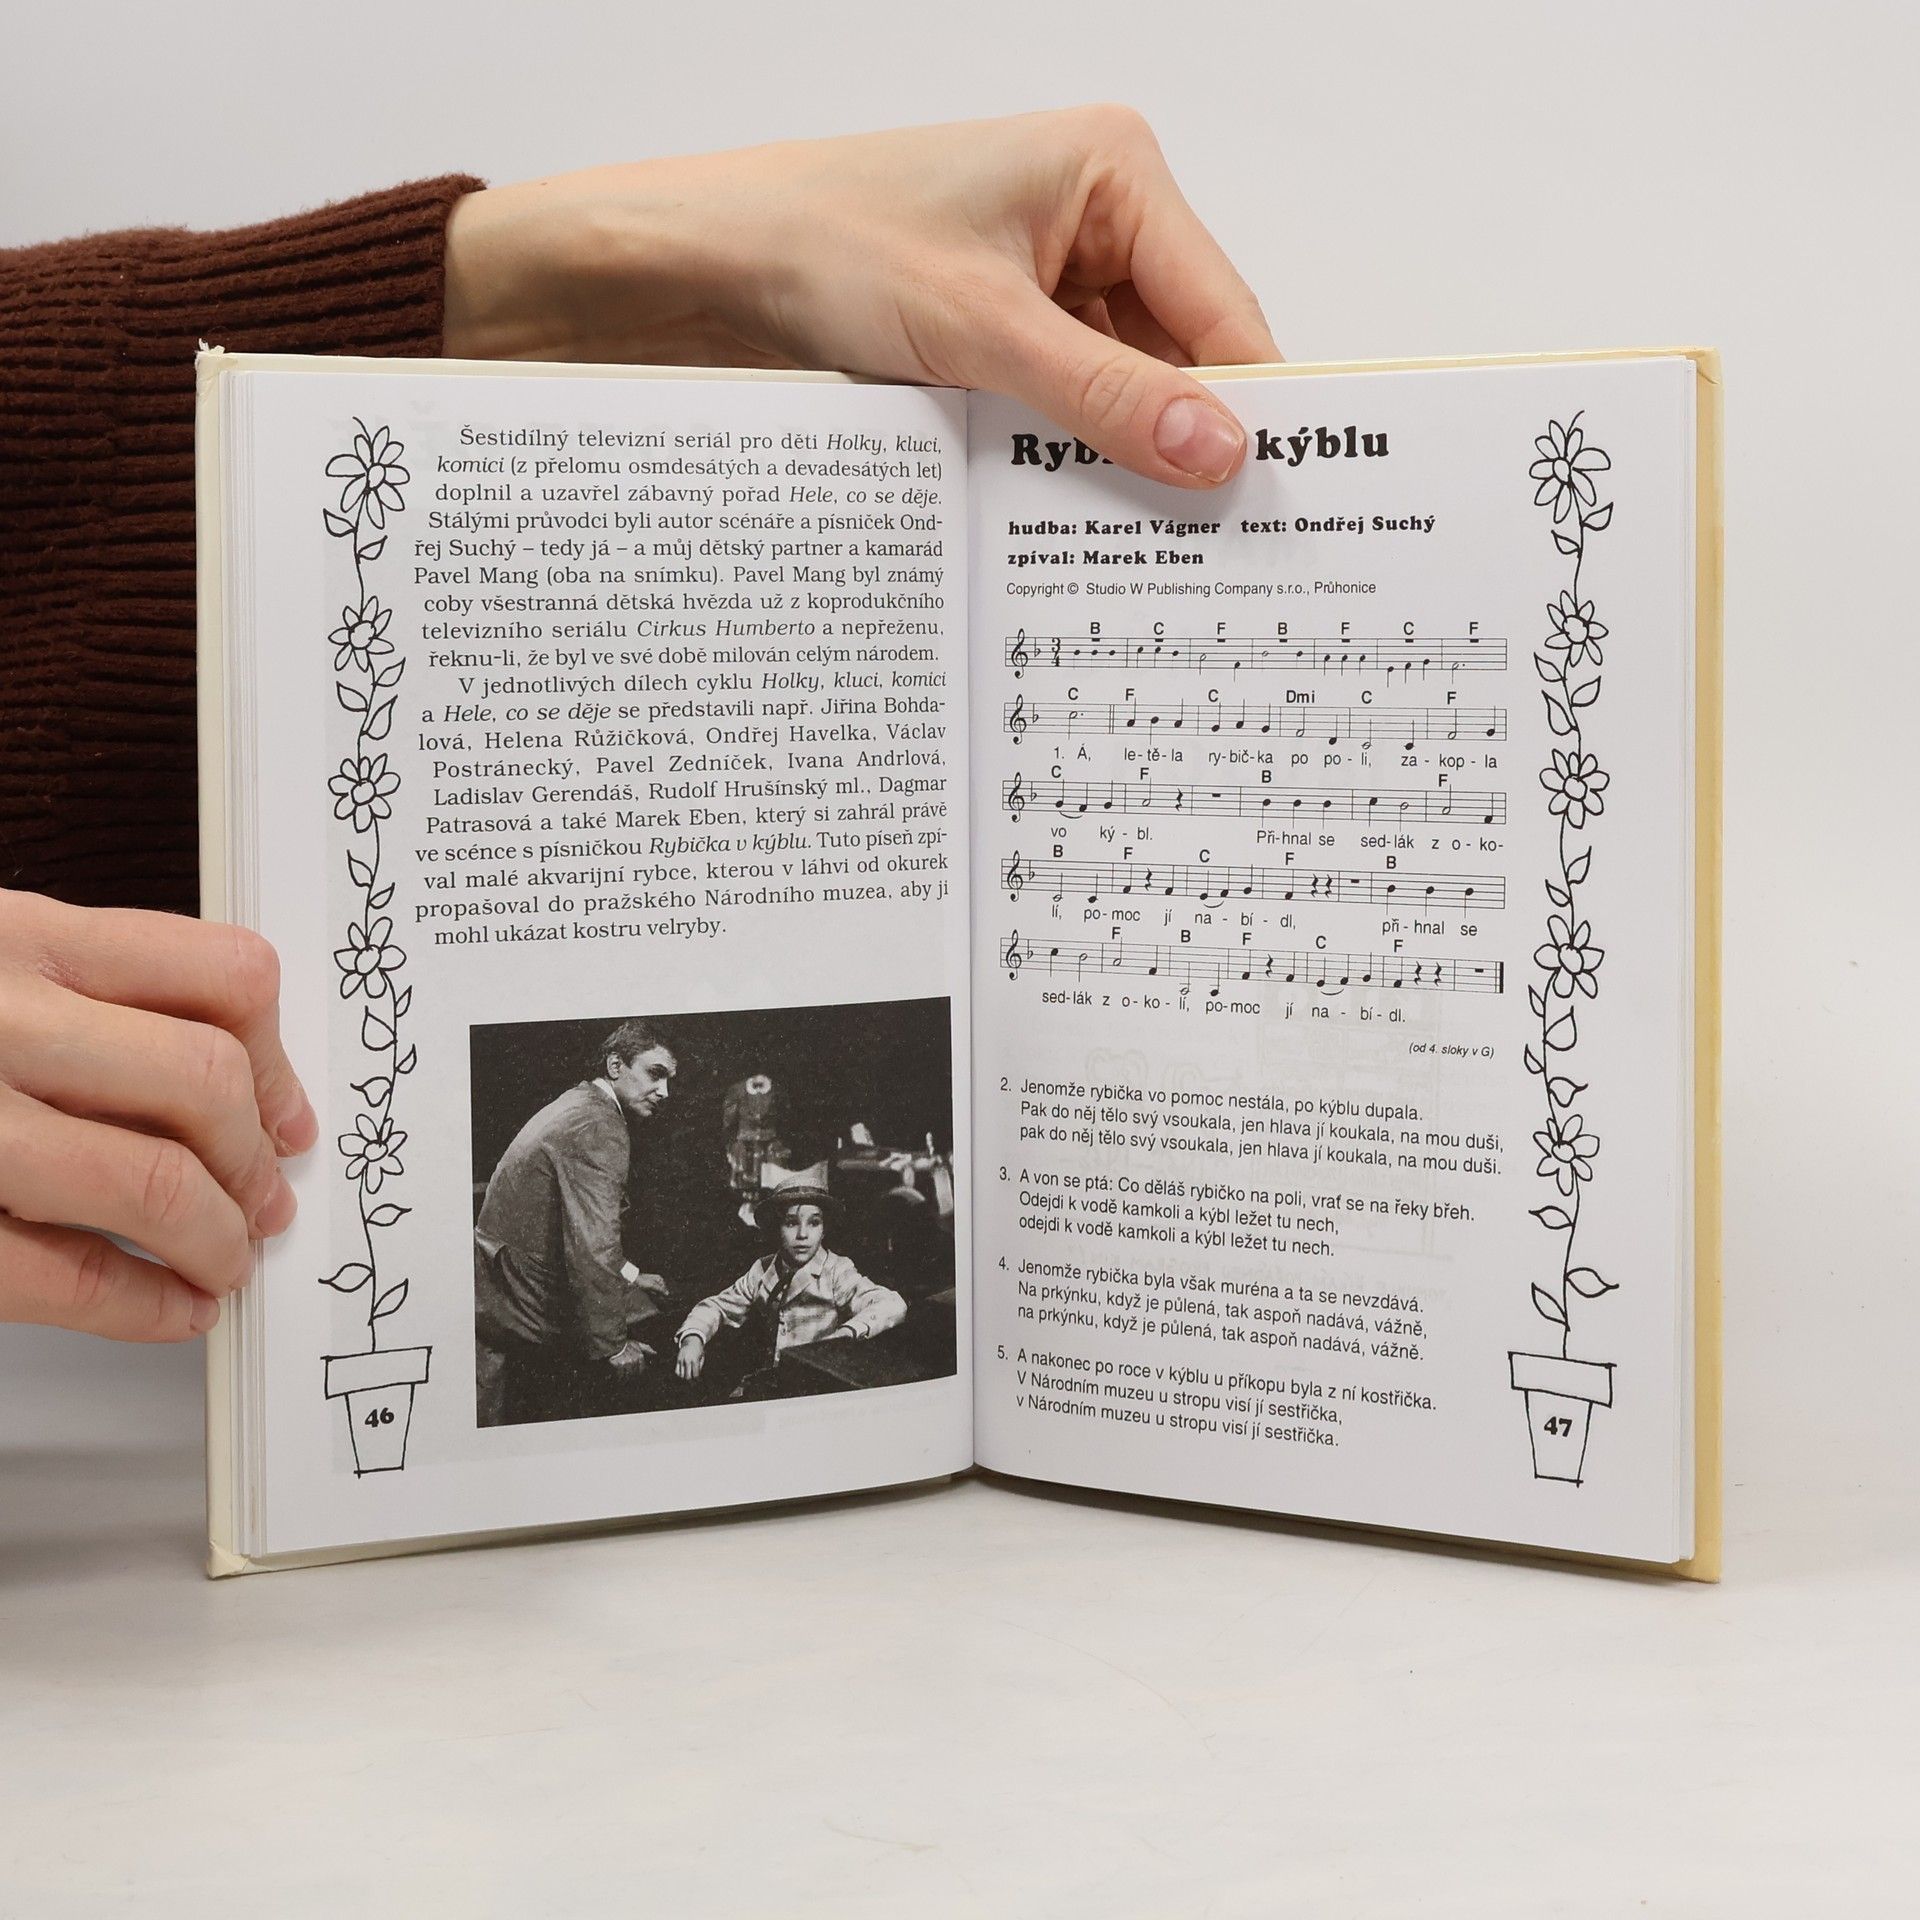 Šestidílný televizní seriál pro děti Holky, kluci,
komici (z přelomu osmdesátých a devadesátých let)
doplnil a uzavřel zábavný pořad Hele, co se děje.
Stálými průvodci byli autor scénáře a písniček Ond-
řej Suchý – tedy já – a můj dětský partner a kamarád
Pavel Mang (oba na snímku). Pavel Mang byl známý
coby všestranná dětská hvězda už z koprodukčního
televizního seriálu Cirkus Humberto a nepřeženu,
řeknu-li, že byl ve své době milován celým národem.
V jednotlivých dílech cyklu Holky, kluci, komici
a Hele, co se děje se představili např. Jiřina Bohda-
lová, Helena Růžičková, Ondřej Havelka, Václav
Postránecký, Pavel Zedníček, Ivana Andrlová,
Ladislav Gerendáš, Rudolf Hrušínský ml., Dagmar
Patrasová a také Marek Eben, který si zahrál právě
ve scénce s písničkou Rybička v kýblu. Tuto píseň zpí-
val malé akvarijní rybce, kterou v láhvi od okurek
propašoval do pražského Národního muzea, aby ji
mohl ukázat kostru velryby.
46
kýblu
hudba: Karel Vágner text: Ondřej Suchý
zpíval: Marek Eben
Copyright © Studio W Publishing Company s.r.o., Průhonice
B C F B F C F
C F C Dmi C F
1. Á, le-tě-la ry-bič-ka po po-li, za-kop-la
C F B F
vo ký-bl. Při-hnal se sed-lák z o-ko-
B F C F B
lí, po-moc jí na-bí-dl, při-hnal se
F B F C F
sed-lák z o-ko-lí, po-moc jí na-bí-dl.
(od 4. sloky v G)
2. Jenomže rybička vo pomoc nestála, po kýblu dupala.
Pak do něj tělo svý vsoukala, jen hlava jí koukala, na mou duši,
pak do něj tělo svý vsoukala, jen hlava jí koukala, na mou duši.
3. A von se ptá: Co děláš rybičko na poli, vrať se na řeky břeh.
Odejdi k vodě kamkoli a kýbl ležet tu nech,
odejdi k vodě kamkoli a kýbl ležet tu nech.
4. Jenomže rybička byla však muréna a ta se nevzdává.
Na prkýnku, když je půlená, tak aspoň nadává, vážně,
na prkýnku, když je půlená, tak aspoň nadává, vážně.
5. A nakonec po roce v kýblu u příkopu byla z ní kostřička.
V Národním muzeu u stropu visí jí sestřička,
v Národním muzeu u stropu visí jí sestřička.
47